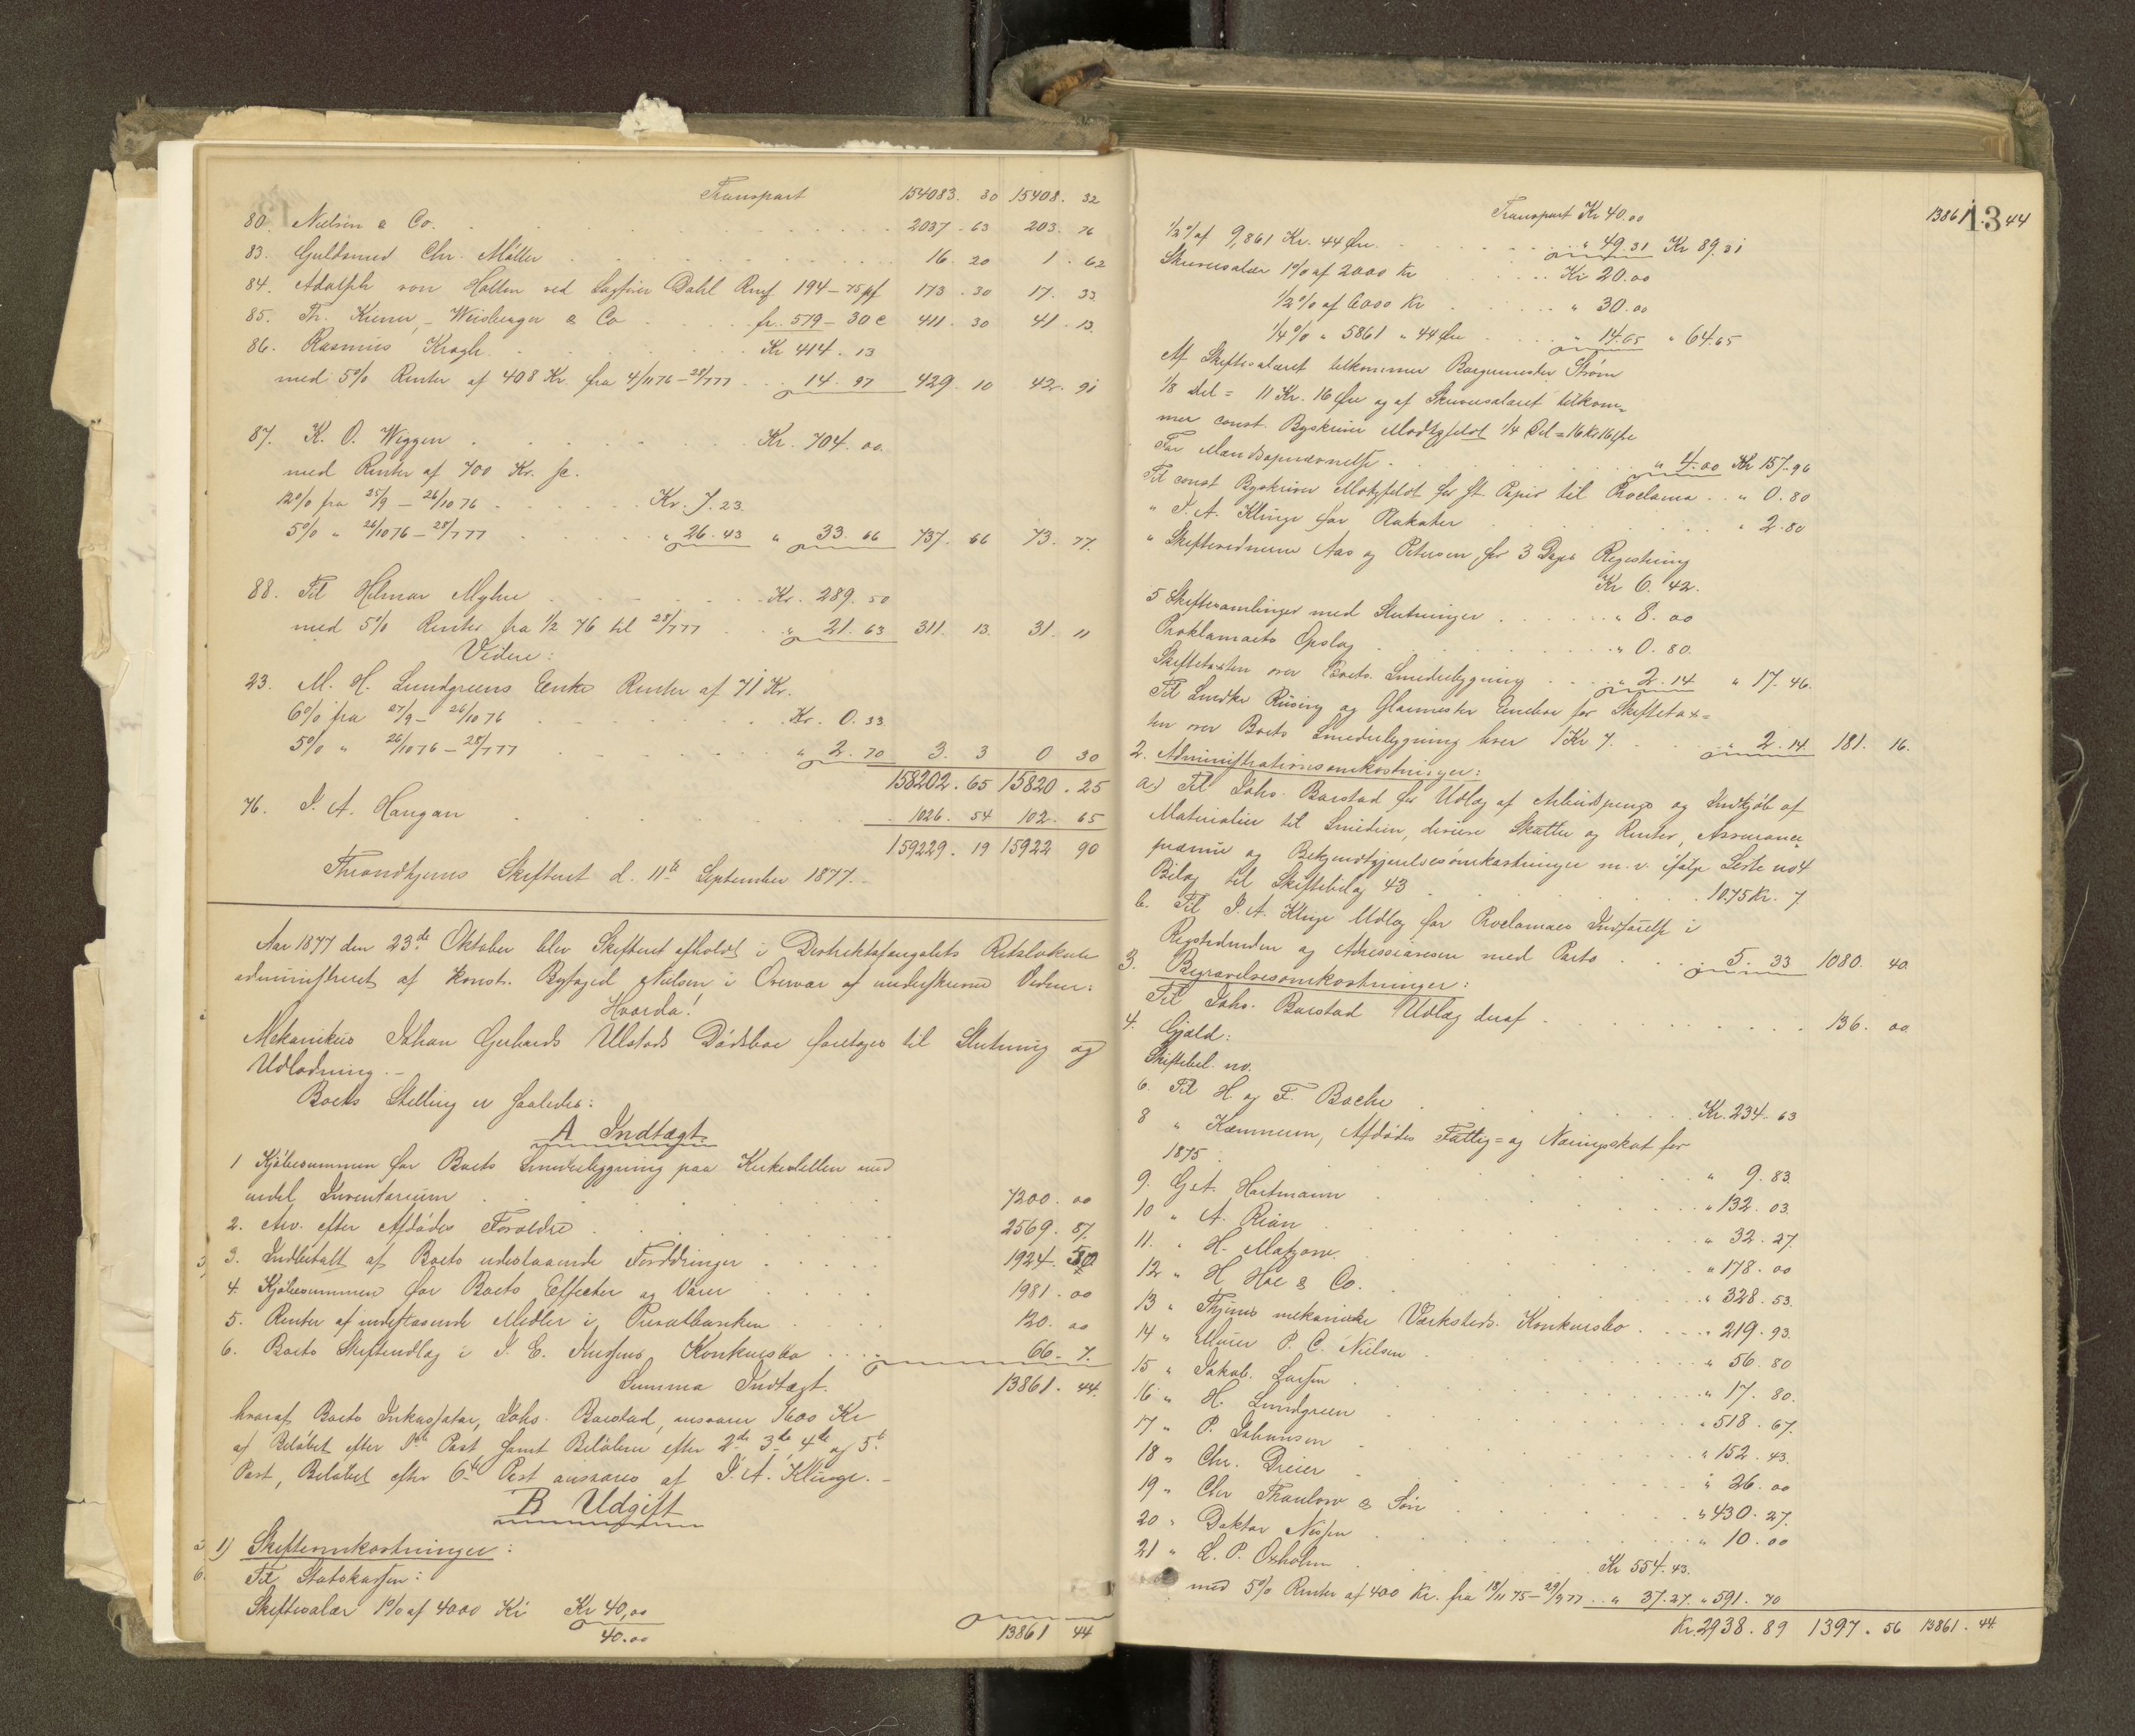 Transport 154083. 30 15408. 32
80. Nielsen & Co. 2037. 63 203. 76
83. Guldsmed Chr. Møller 16. 20 1. 62
84. Adolph von Halten ved Sagfører Dahl Rmf 194-75 pf 173. 30 17. 33
85. Th. Kiener, Weisberger & Co fr. 519-30 c 411. 30 41. 13
86. Rasmus Krogh Kr 414. 13
med 5% Renter af 408 Kr. fra 4/11 76 - 28/7 77 14. 97 429. 10 42. 91
87. K. O. Wiggen Kr. 704. 00
med Renter af 700 Kr.
12% fra 25/9 - 26/10 76 Kr. 7. 23.
5% " 26/10 76 - 28/7 77 " 26. 43 " 33. 66 737. 66 73. 77.
88. Til Helmar Myhre Kr. 289. 50
med 5% Renter fra 1/2 76 til 28/7 77 " 21. 63 311. 13. 31. 11
Videre:
23. M. H. Lundgreens Enke Renter af 71 Kr.
6% fra 27/9 - 26/10 76 Kr. 0. 33
5% " 26/10 76 - 28/7 77 " 2. 70 3. 3 0 30
158202. 65 15820. 25
76. I. A. Haugan 1026. 54 102. 65
159229. 19 15922 90
Throndhjems Skifteret d. 11te September 1877.
Aar 1877 den 23de Oktober blev Skifteret afholdt i Distriktsfængslets Retslokale
administreret af konst. Byfoged Nielsen i Overvær af underskrevne Vidner:
Hvorda!
Mekanikus Johan Gerhards Ulstads Dødsbo foretages til Slutning og
Udlodning.
Boets Stilling er saaledes:
A Indtægt.
1 Kjøbesummen for Boets Smedebygning paa Kirkesletten med
endel Inventarium 7200. 00
2. Arv efter Afdødes Forældre 2569. 87.
3. Indbetalt af Boets udestaaende Fordringer 1924. 50
4. Kjøbesummen for Boets Effecter og Varer 1981. 00
5. Renter af indestaaende Midler i Privatbanken 120. 00
6. Boets Skifteudlæg i I. E. Konkursbo 66. 7.
Summa Indtægt. 13861. 44.
hvoraf Boets Inkassator, Johs. Barstad, ansvarer 5600 Kr
af Beløbet efter 1ste Post samt Beløbene efter 2de 3de 4de og 5te
Post, Beløbet efter 6te Post ansvares af I. A. Klinge.
B Udgift
1) Skifteomkostninger:
Til Statskassen:
Skiftesalær 1% af 4000 Kr Kr 40,00
40.00 13861 44
13
Transport Kr 40.00 13861. 44
1/2% af 9,861 Kr. 44 Øre " 49.31 Kr 89.31
Skriversalær 1% af 2000 Kr Kr 20.00
1/2% af 6000 Kr " 30.00
1/4% " 5861 " 44 Øre " 14.65 " 64.65
Af Skiftesalæret tilkommer Borgermester Strøm
1/8 Del = 11 Kr. 16 Øre og af Skriversalæret tilkom-
mer const. Byskriver Motzfeldt 1/4 Del = 16 Kr 16 Øre
For Mandsopnævnelse " 4.00 Kr 157.96
Til const Byskriver Motzfeldt for st. Papir til Proclama " 0.80
" I. A. Klinge for Plakater " 2.80
" Skiftevidnerne Aas og Petersen for 3 Dages Registrering
Kr 6. 42.
5 Skiftesamlinger med Slutninger " 8. 00
Proklamaets Opslag " 0. 80.
Skiftetaxten over Boets Smedebygning " 2. 14 " 17. 46.
Til Snedker Riising og Glarmester for Skiftetax-
ten over Boets Smedebygning hver 1 Kr 7 " 2. 14 181. 16.
2. Administrationsomkostninger:
a) Til Johs. Barstad for Udlæg af Arbeidspenge og Indkjøb af
Materialier til Smedien, diverse Skatter og Renter, Assurance-
præmie og Bekjendtgjørelsesomkostninger m. v. ifølge Liste no 4
Bilag til Skiftebilag 43 1075 Kr. 7
b. Til I. A. Klinge Udlæg for Proclamaets Indførelse i
Rigstidenden og Adresseavisen med Porto 5. 33 1080. 40.
3. Begravelsesomkostninger:
Til Johs. Barstad Udlæg deraf 136. 00
4. Gjæld:
Skiftebil. no.
6. Til H. og F. Bache Kr. 234. 63
8 " Kæmneren, Afdødes Fattig- og Næringsskat for
1875 " 9. 83.
9. G. A. Hartmann " 132. 03.
10 " A. Rian " 32. 27.
11. " H. Matzow " 178. 00
12 " H. Hoe & Co. " 328. 53.
13 " Thjems mekaniske Værksteds Konkursbo " 219. 93.
14 " Murer P. C. Nielsen " 56. 80
15 " Jakob Larsen " 17. 80.
16 " H. Lundgreen " 518. 67.
17 " P. Johansen " 152. 43.
18 " Chr. Dreier " 26. 00
19 " Chr Thaulow & Søn " 430. 27.
20 " Doktor Nissen " 10. 00
21 " L. P. Oxholm Kr 554. 43.
med 5% Renter af 400 Kr. fra 18/11 75 - 29/9 77 " 37.27. " 591. 70
Kr. 2938. 89 1397. 56 13861. 44.